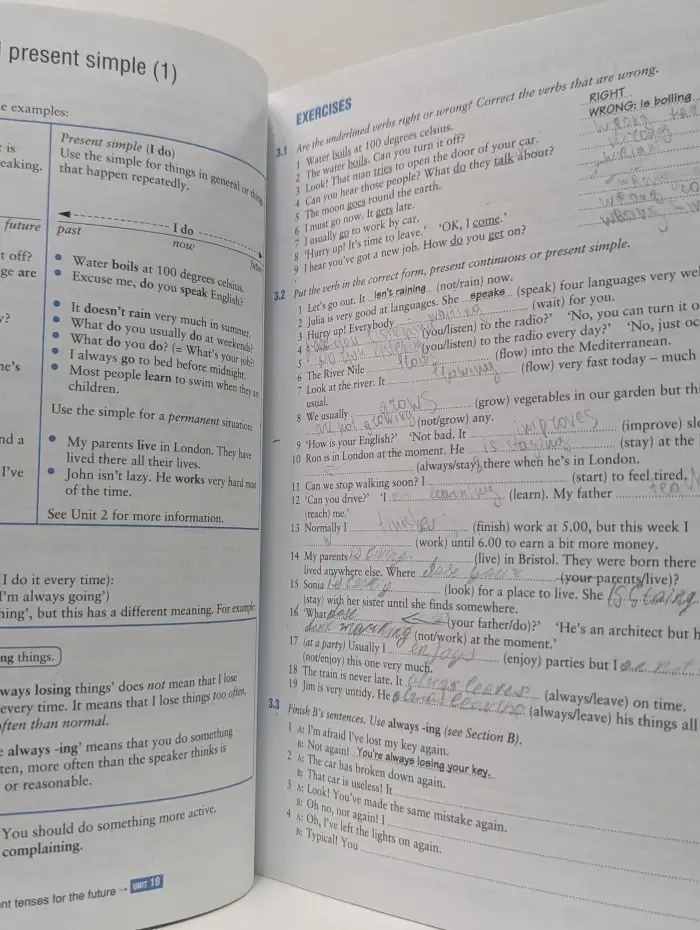 present simple (1)
e examples:
is
eaking.
Present simple (I do)
Use the simple for things in general or things
that happen repeatedly.
future
past
I do
now
future
t off?
ge are
Water boils at 100 degrees celsius.
Excuse me, do you speak English?
It doesn't rain very much in summer.
What do you usually do at weekends?
What do you do? (= What's your job?)
I always go to bed before midnight.
Most people learn to swim when they are
children.
y?
he's
Use the simple for a permanent situation
nd a
My parents live in London. They have
lived there all their lives.
I've
John isn't lazy. He works very hard most
of the time.
See Unit 2 for more information.
I do it every time):
I'm always going')
ning', but this has a different meaning. For example
ng things.
ways losing things' does not mean that I lose
every time. It means that I lose things too often,
ften than normal.
always -ing' means that you do something
ten, more often than the speaker thinks is
or reasonable.
You should do something more active.
complaining.
nt tenses for the future → UNIT 19
EXERCISES
3.1 Are the underlined verbs right or wrong? Correct the verbs that are wrong.
1 Water boils at 100 degrees celsius. RIGHT
2 The water boils. Can you turn it off? WRONG: is boiling
3 Look! That man tries to open the door of your car. wrong
4 Can you hear those people? What do they talk about? wrong
5 The moon goes round the earth.
6 I must go now. It gets late. wrong
7 I usually go to work by car.
8 'Hurry up! It's time to leave.' 'OK, I come.' wrong
9 I hear you've got a new job. How do you get on? wrong
3.2 Put the verb in the correct form, present continuous or present simple.
1 Let's go out. It isn't raining (not/rain) now.
2 Julia is very good at languages. She speaks (speak) four languages very we
3 Hurry up! Everybody (wait) for you.
4 ' (you/listen) to the radio?' 'No, you can turn it o
5 ' (you/listen) to the radio every day?' 'No, just oc
6 The River Nile flow (flow) into the Mediterranean.
7 Look at the river. It flowing (flow) very fast today – much
usual.
8 We usually grows (grow) vegetables in our garden but thi
are not growing (not/grow) any.
9 'How is your English?' 'Not bad. It improves (improve) slo
10 Ron is in London at the moment. He is staying (stay) at the
(always/stay) there when he's in London.
11 Can we stop walking soon? I (start) to feel tired.
12 'Can you drive?' 'I learning (learn). My father
(teach) me.'
13 Normally I finish (finish) work at 5.00, but this week I
(work) until 6.00 to earn a bit more money.
14 My parents is living (live) in Bristol. They were born there
lived anywhere else. Where dose your (your parents/live)?
15 Sonia (look) for a place to live. She is staing
(stay) with her sister until she finds somewhere.
16 'What dose (your father/do)?' 'He's an architect but h
dont working (not/work) at the moment.'
17 (at a party) Usually I enjoys (enjoy) parties but I are not
(not/enjoy) this one very much.
18 The train is never late. It always leaves (always/leave) on time.
19 Jim is very untidy. He always leaving (always/leave) his things all
3.3 Finish B's sentences. Use always -ing (see Section B).
1 A: I'm afraid I've lost my key again.
B: Not again! You're always losing your key.
2 A: The car has broken down again.
B: That car is useless! It
3 A: Look! You've made the same mistake again.
B: Oh no, not again! I
4 A: Oh, I've left the lights on again.
B: Typical! You